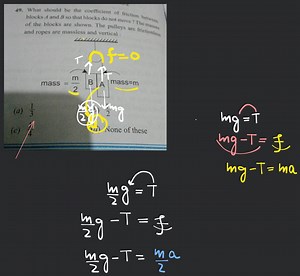 49. What should be the coefficient of friction between
blocks A and B so that blocks do not move? The masses
of the blocks are shown. The pulleys are frictionless
and ropes are massless and vertical:
f=0
T T
mass = m/2 B A mass=m
m/2 g mg
(a) 1/3
(c) None of these
mg=T
mg-T=f
mg-T=ma
m/2 g=T
m/2 g-T=f
m/2 g-T=ma/2